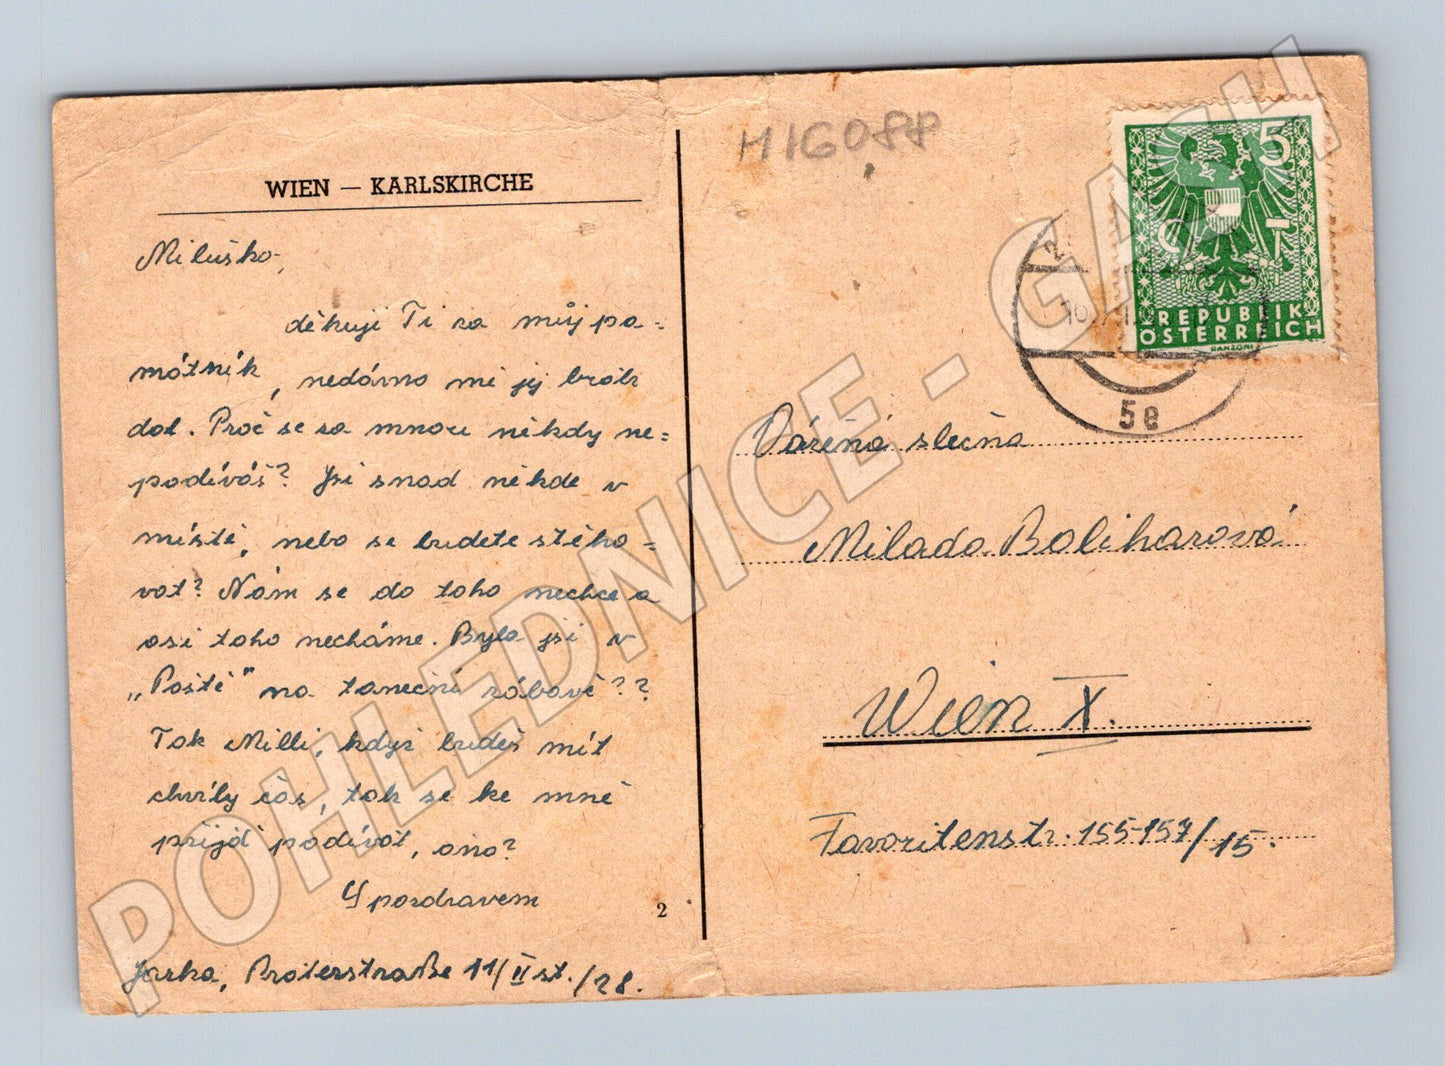 WIEN — KARLSKIRCHE
Miluško,
děkuji Ti za můj pa-
mátník, nedávno mi jej bráh
dal. Proč se za mnou někdy ne=
podíváš? Jsi snad někde v
místě, nebo se budete stěho-
vat? Nám se do toho nechce a
asi toho necháme. Byla jsi v
„Poště" na taneční zábavě??
Tak Milli, když budeš mít
chvíly čas, tak se ke mně
přijď podívat, ano?
S pozdravem
2
Jarka, Praterstraße 11/II st./28.
H16088
5
REPUBLIK
ÖSTERREICH
RANZONI
5e
Vážená slečna
Milada Boliharová
Wien X.
Favoritenstr. 155-157/15.
POHLEDNICE - GASH